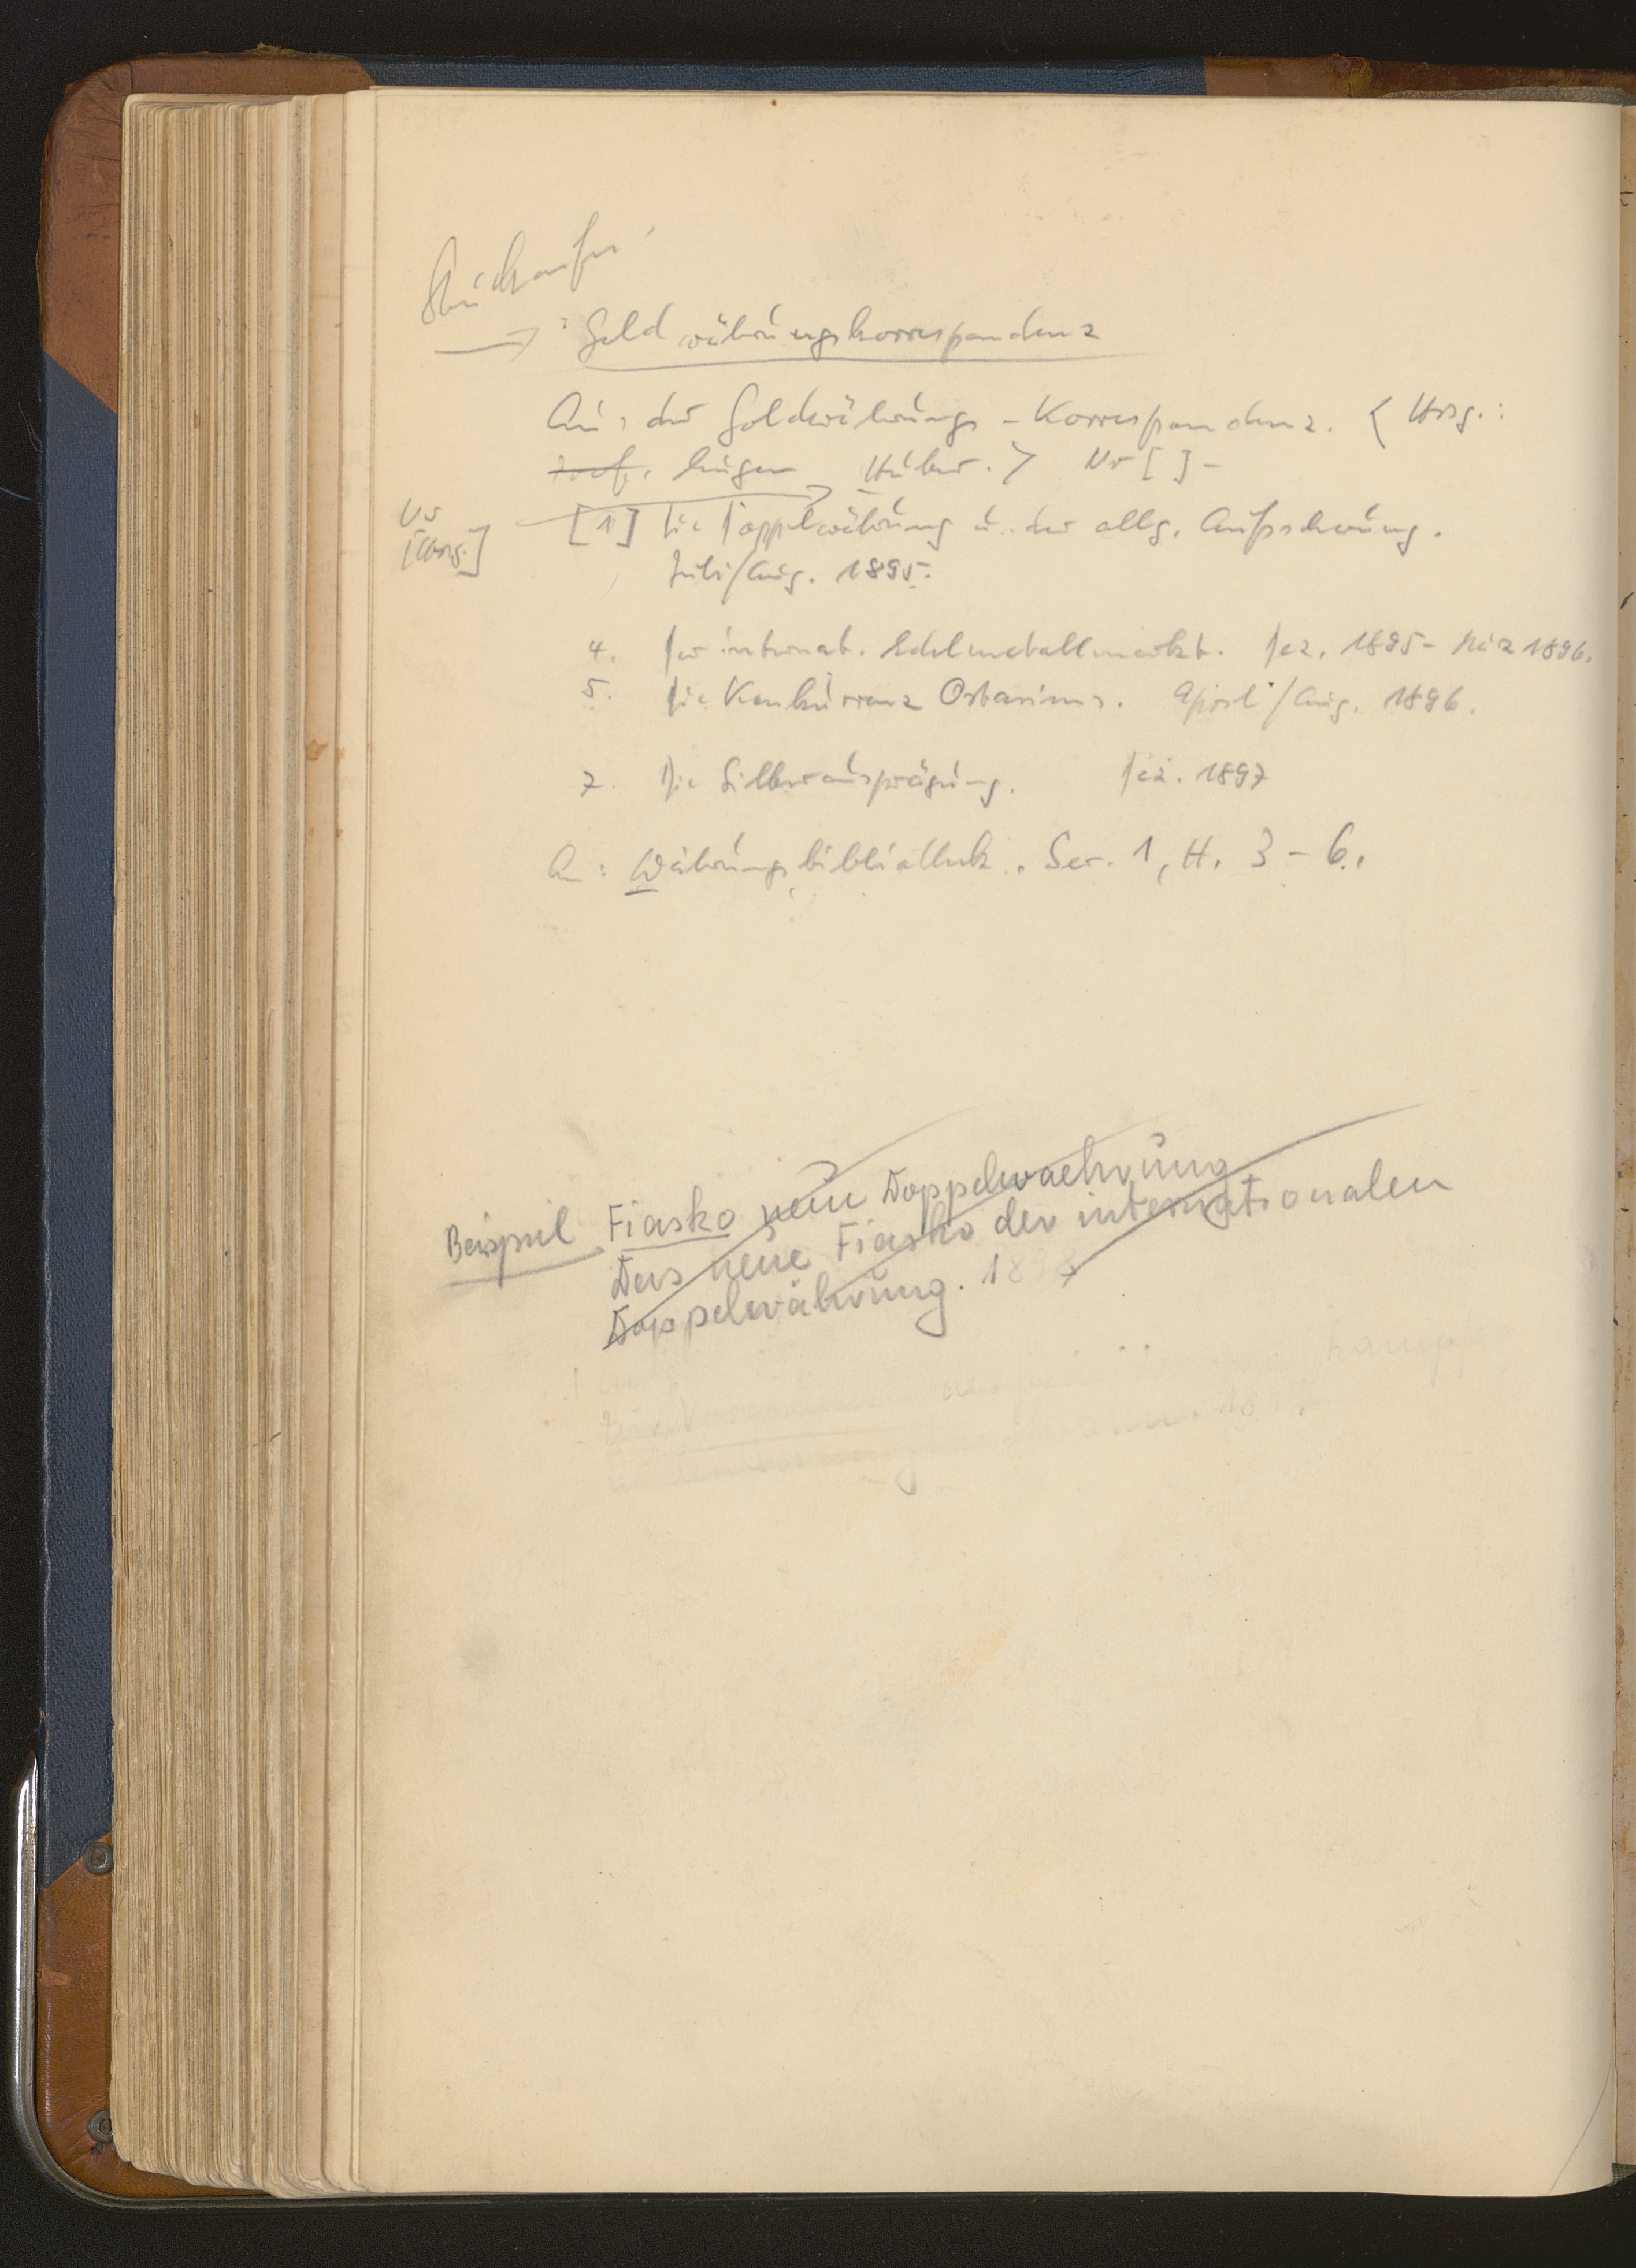 → Goldwährungskorrespondenz
Aus der Goldwährungs-Korrespondenz. < Hrsg.:
Eugen Huber. > Nr [ ] -
[1] Die Doppelwährung u. der allg. Aufschwung.
Juli/Aug. 1895.
4. Der internat. Edelmetallmarkt. Dez. 1895 - März 1896.
5. Die Konkurrenz Ostasiens. April/Aug. 1896.
7. Die Silberausprägung. Dez. 1897
An: Währungsbibliothek. Ser. 1, H. 3-6.
Beispiel Fiasko neu Doppelwaehrung
Das neue Fiasko der internationalen
Doppelwährung.